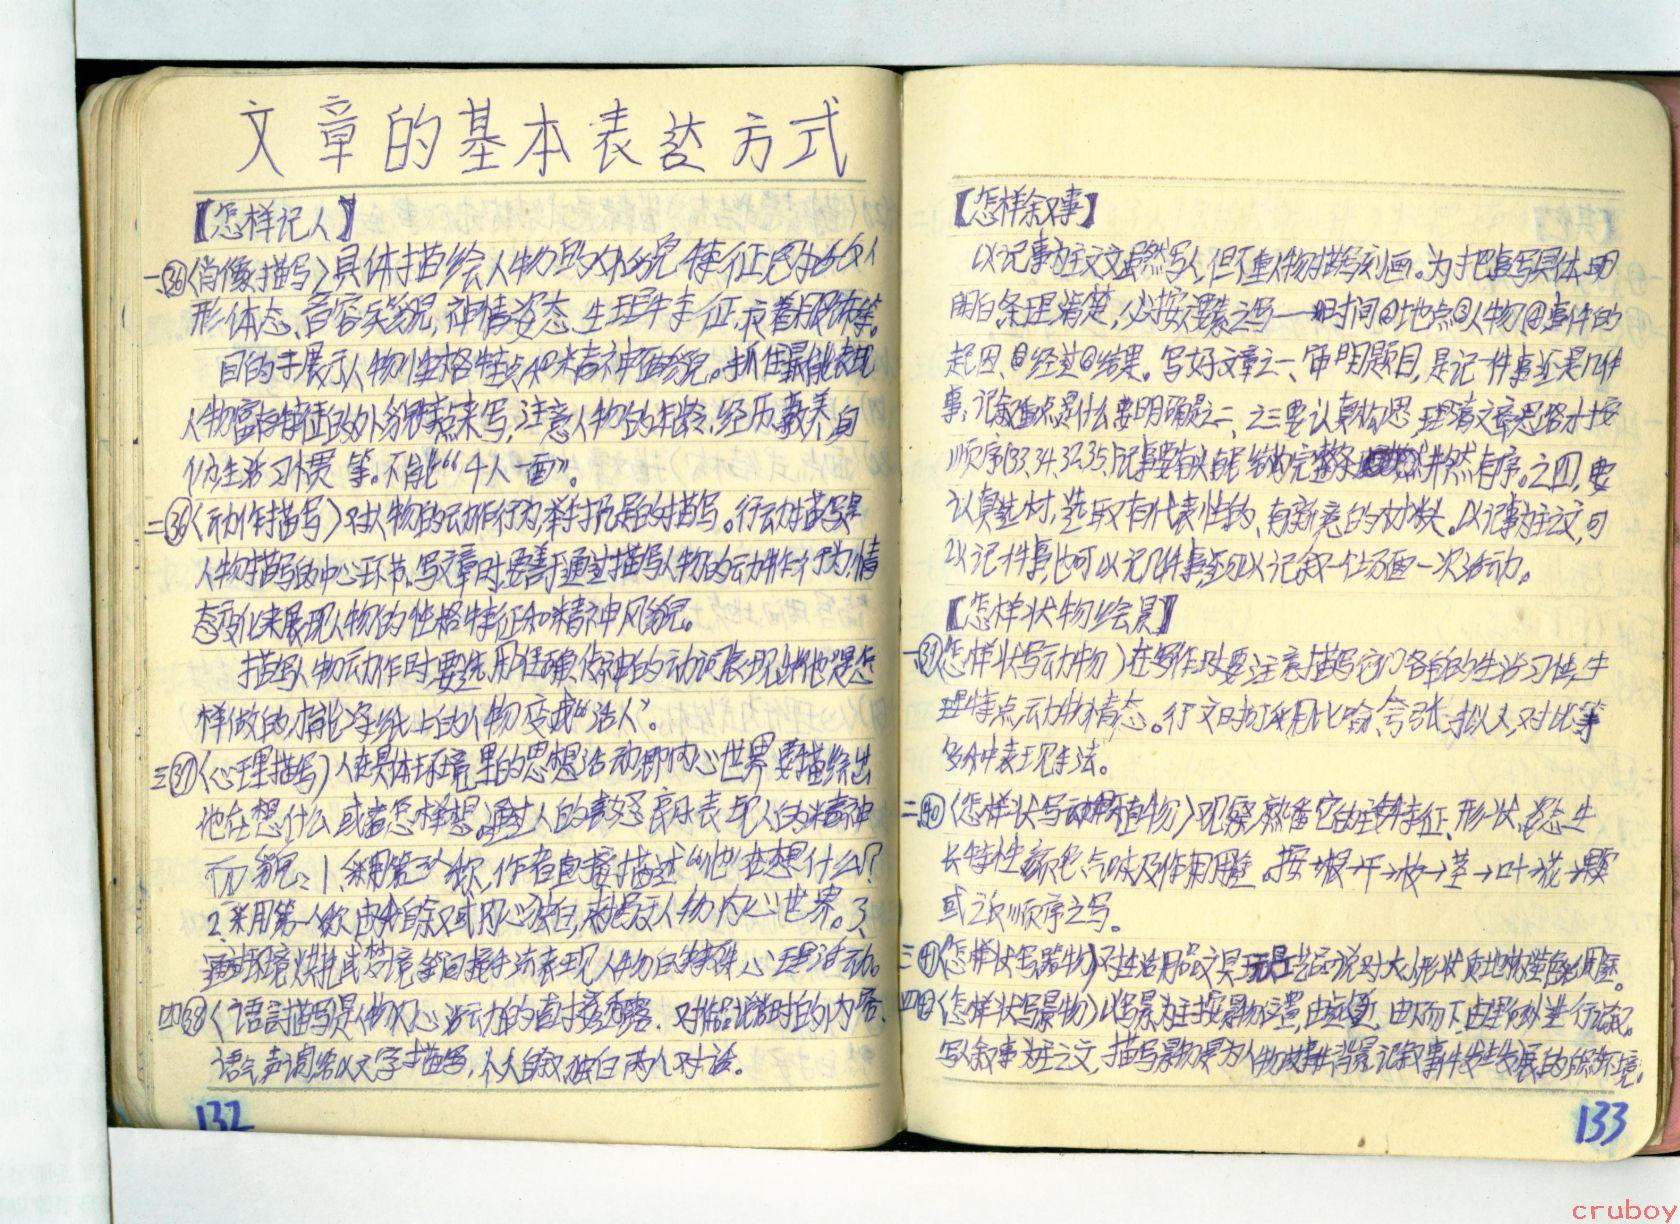 文章的基本表达方式
【怎样记人】
一、㉟〈肖像描写〉具体描绘人物的外貌特征
形体态、音容笑貌,神情姿态、生理特征,衣着服饰等。
目的于展示人物性格特点和精神面貌。抓住最能表现
人物富有特征的外貌特点来写,注意人物的年龄、经历、教养、自
生活习惯等。不能“千人一面”。
二、㊱〈动作描写〉对人物的动作行为,举手投足的描写。行动描写是
人物描写的中心环节。写文章时,要善于通过描写人物的动作行为,情
态变化来展现人物的性格特征和精神风貌。
描写人物动作时要选用准确传神的动词表现出他是怎
样做的,才能令纸上的人物变成“活人”。
三、㊲〈心理描写〉人在具体环境里的思想活动即内心世界,要描绘出
他在想什么,或者怎样想。通过人的喜怒哀乐表现人的精神
面貌:1、采用第三人称,作者直接描述“他”在想什么?
2、采用第一人称,由自叙或内心独白,来写人物内心世界。3、
通过环境烘托或梦境等间接手法表现人物的特殊心理活动。
四、㊳〈语言描写〉是人物内心活动的直接透露,对作品说话时的内容、
语气声调等以文字描写,个人自叙独白,两人对话。
132
【怎样叙事】
以记事为主文虽然写人,但不重人物描写刻画。为了把事写具体,明
明白条理清楚,必按六要素之写——①时间②地点③人物④事件的
起因、⑤经过⑥结果。写好文章之一、审明题目,是记一件事还是几件
事,记叙重点是什么要明确,之二、之三要认真构思,理清文章思路,才按
顺序(33.34.32.35.)记事要有头有尾,结构完整,井然有序。之四,要
认真选材,选取有代表性的、有新意的材料。以记事为主之文,可
以记一件事,也可以记几件事,还可以记叙一个场面一次活动。
【怎样状物绘景】
一、㊴〈怎样状写动物〉在写作时要注意描写它们各自的生活习性,生
理特点,动物情态。行文时可采用比喻、夸张、拟人、对比等
多种表现手法。
二、㊵〈怎样状写植物〉观察熟悉它的主要特征、形状、姿态、生
长特性、颜色、气味及作用用途。按根→干→枝→茎→叶→花→果实
或之反顺序之写。
三、㊶〈怎样状写器物〉对生活用品文具玩具艺品说对大小形状质地构造色彩用途。
四、㊷〈怎样状写景物〉以写景为主按景物位置,由远到近,由下而下,由里到外进行描写。
写人叙事为主之文,描写景物是为人物故事作背景,记叙事件发生发展的自然环境。
133
cruboy